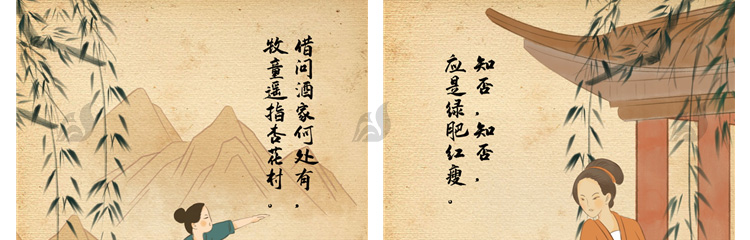 借问酒家何处有，
牧童遥指杏花村。
知否，知否，
应是绿肥红瘦。